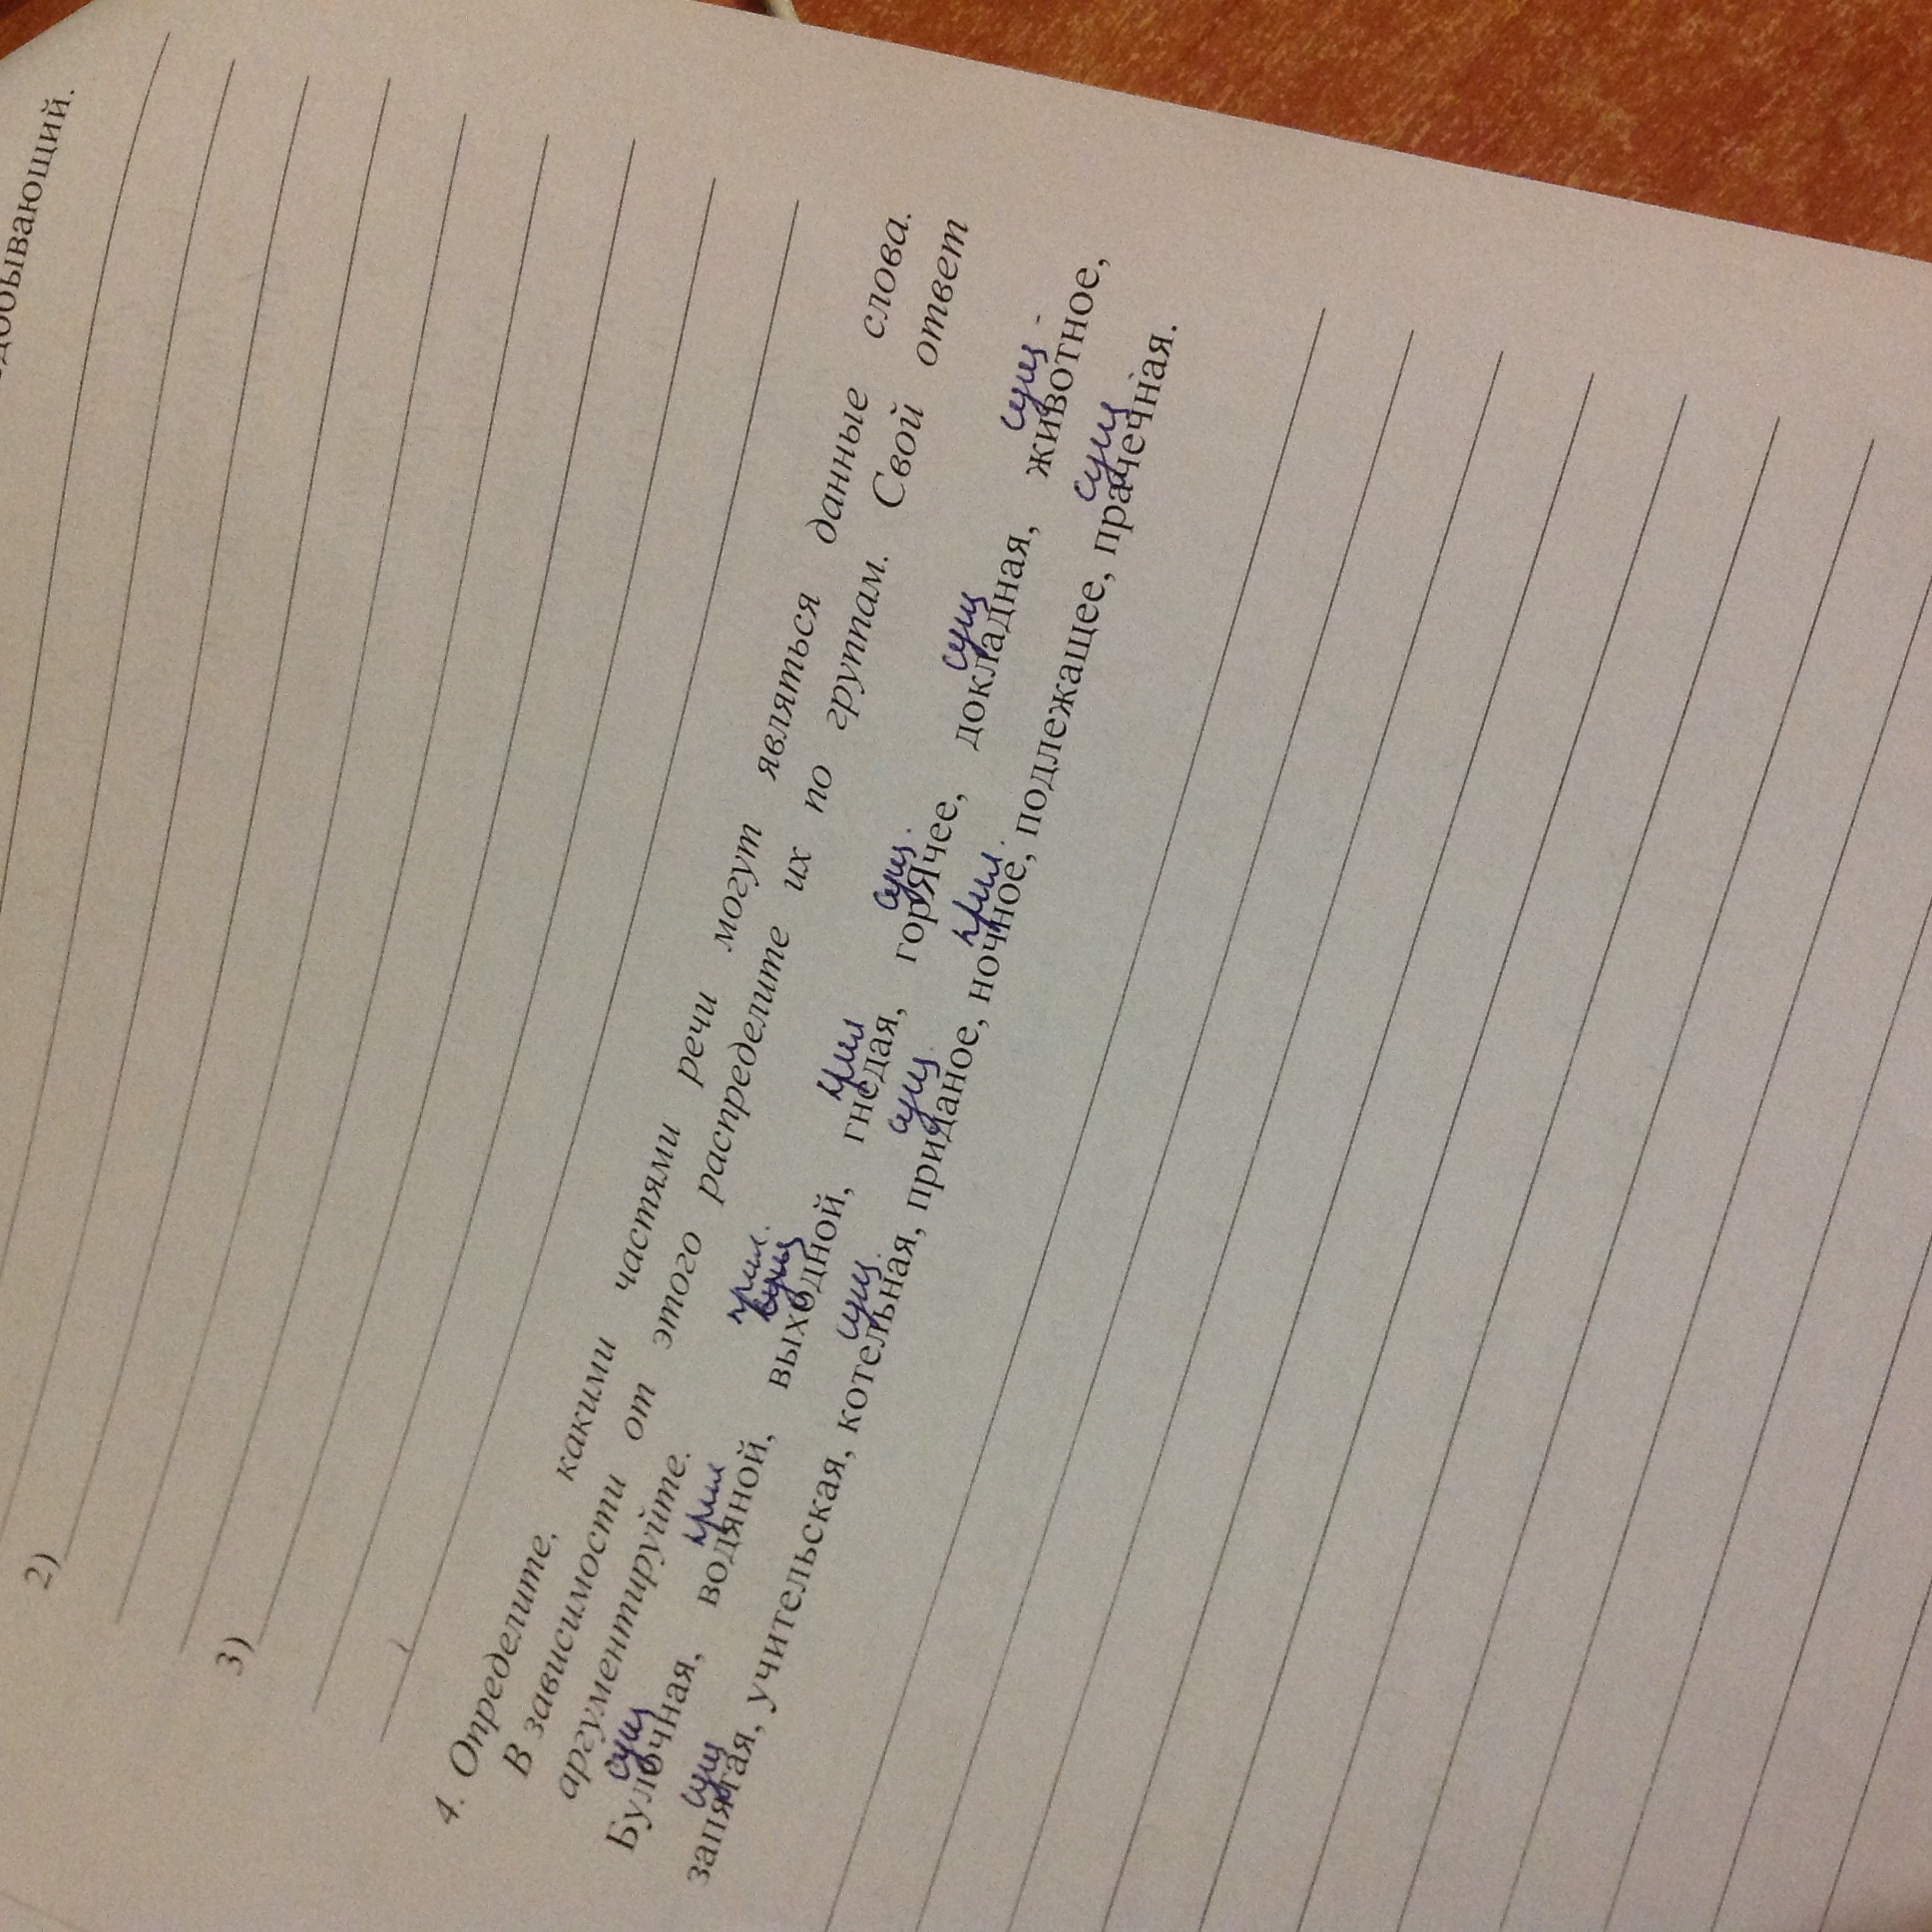 добывающий.
2)
3)
4. Определите, какими частями речи могут являться данные слова.
В зависимости от этого распределите их по группам. Свой ответ
аргументируйте.
сущ прил прил. сущ прил сущ. сущ сущ -
Булочная, водяной, выходной, гнедая, горячее, докладная, животное,
сущ сущ. сущ. прил. сущ
запятая, учительская, котельная, приданое, ночное, подлежащее, прачечная.